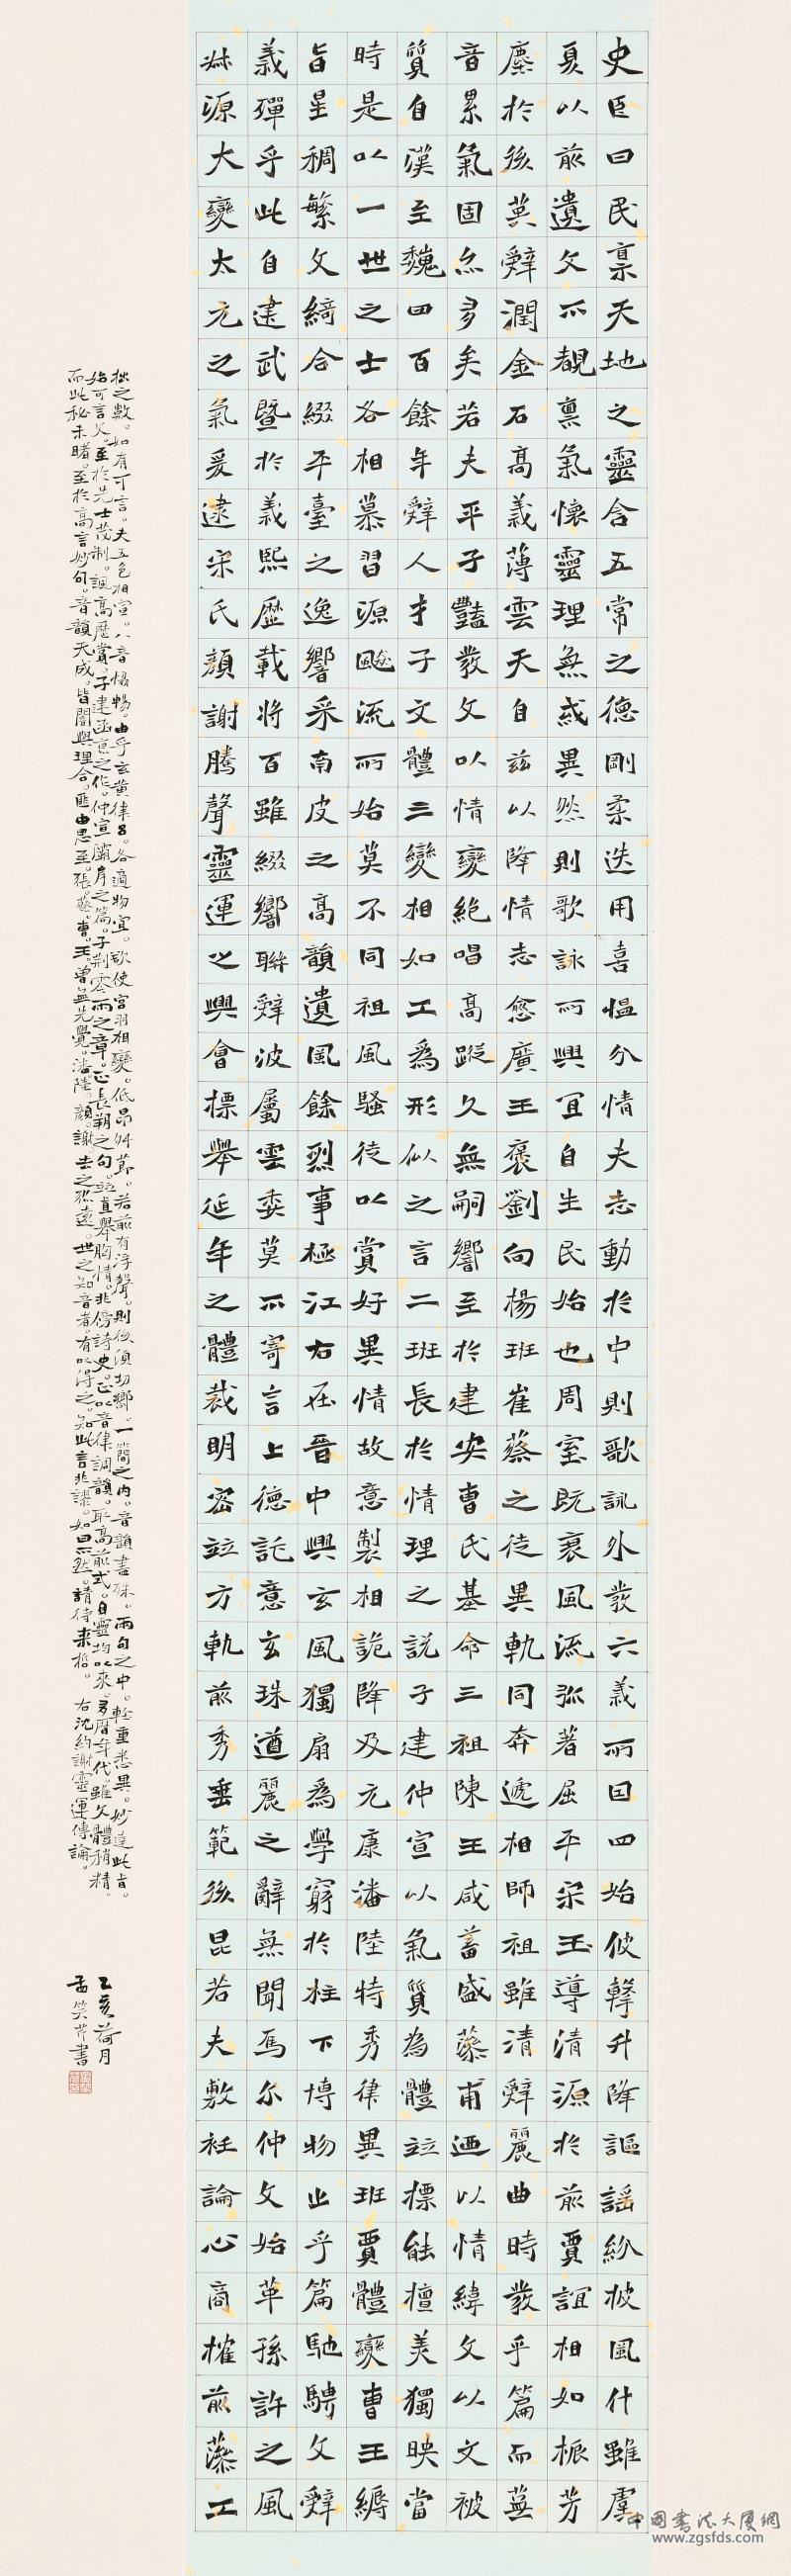 史臣曰民稟天地之靈含五常之德剛柔迭用喜慍分情夫志動於中則歌詠外發六義所因四始攸繫升降謳謠紛披風什雖虞
夏以前遺文不覩稟氣懷靈理無或異然則歌詠所興宜自生民始也周室既衰風流弥著屈平宋玉導清源於前賈誼相如振芳
塵於後英辭潤金石高義薄雲天自茲以降情志愈廣王褒劉向楊班崔蔡之徒異軌同奔遞相師祖雖清辭麗曲時發乎篇而蕪
音累氣固亦多矣若夫平子豔發文以情變絕唱高蹤久無嗣響至於建安曹氏基命三祖陳王咸蓄盛藻甫迺以情緯文以文被
質自漢至魏四百餘年辭人才子文體三變相如工為形似之言二班長於情理之說子建仲宣以氣質為體並標能擅美獨映當
時是以一世之士各相慕習源飈流所始莫不同祖風騷徒以賞好異情故意製相詭降及元康潘陸特秀律異班賈體變曹王縟
旨星稠繁文綺合綴平臺之逸響采南皮之高韻遺風餘烈事極江右在晉中興玄風獨扇為學窮於柱下博物止乎篇馳騁文辭
義殫乎此自建武暨於義熙歷載將百雖綴響聯辭波屬雲委莫不寄言上德託意玄珠遒麗之辭無聞焉尔仲文始革孫許之風
叔源大變太元之氣爰逮宋氏顏謝騰聲靈運之興會標舉延年之體裁明密並方軌前秀垂範後昆若夫敷衽論心商榷前藻工
拙之數。如有可言。夫五色相宣。八音協暢。由乎玄黃律呂。各適物宜。欲使宮羽相變。低昂舛節。若前有浮聲。則後須切響。一簡之內。音韻盡殊。兩句之中。輕重悉異。妙達此旨。
始可言文。至於先士茂制。諷高歷賞。子建函京之作。仲宣灞岸之篇。子荊零雨之章。正長朔之句。並直舉胸情。非傍詩史。正以音律調韻。取高前式。自靈均以來。多歷年代。雖文體稍精。
而此秘未睹。至於高言妙句。音韻天成。皆闇與理合。匪由思至。張。蔡。曹。王。曾無先覺。潘。陸。顏。謝。去之彌遠。世之知音者。有以得之。知此言非謬。如曰不然。請待來哲。右沈約謝靈運傳論。
己亥荷月
孟笑芹書
中国书法大厦网
www.zgsfds.com